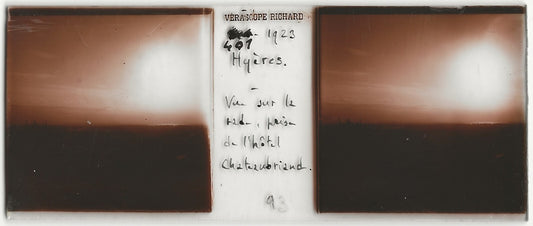 VÉRASCOPE RICHARD
1923
401
Hyères.
-
Vue sur la
rade, prise
de l'hôtel
Chateaubriand.
93